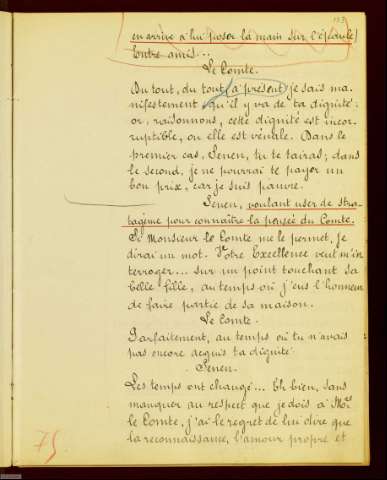 en arrière et lui poser la main sur l'épaule)
Entre amis...
Le Comte.
Du tout, du tout (à présent) je sais ma-
nifestement qu'il y va de ta dignité:
or, raisonnons, cette dignité est incor-
ruptible, ou elle est vénale. Dans le
premier cas, Senen, tu te tairas; dans
le second, je ne pourrai te payer un
bon prix, car je suis pauvre.
Senen, voulant user de stra-
tagème pour connaître la pensée du Comte.
Si Monsieur le Comte me le permet, je
dirai un mot. Votre Excellence veut m'in-
terroger... sur un point touchant sa
belle fille, au temps où j'eus l'honneur
de faire partie de sa maison.
Le Comte.
Parfaitement, au temps où tu n'avais
pas encore acquis ta dignité.
Senen.
Les temps ont changé... Eh bien, sans
manquer au respect que je dois à Mor
le Comte, j'ai le regret de lui dire que
la reconnaissance, l'amour propre et
75